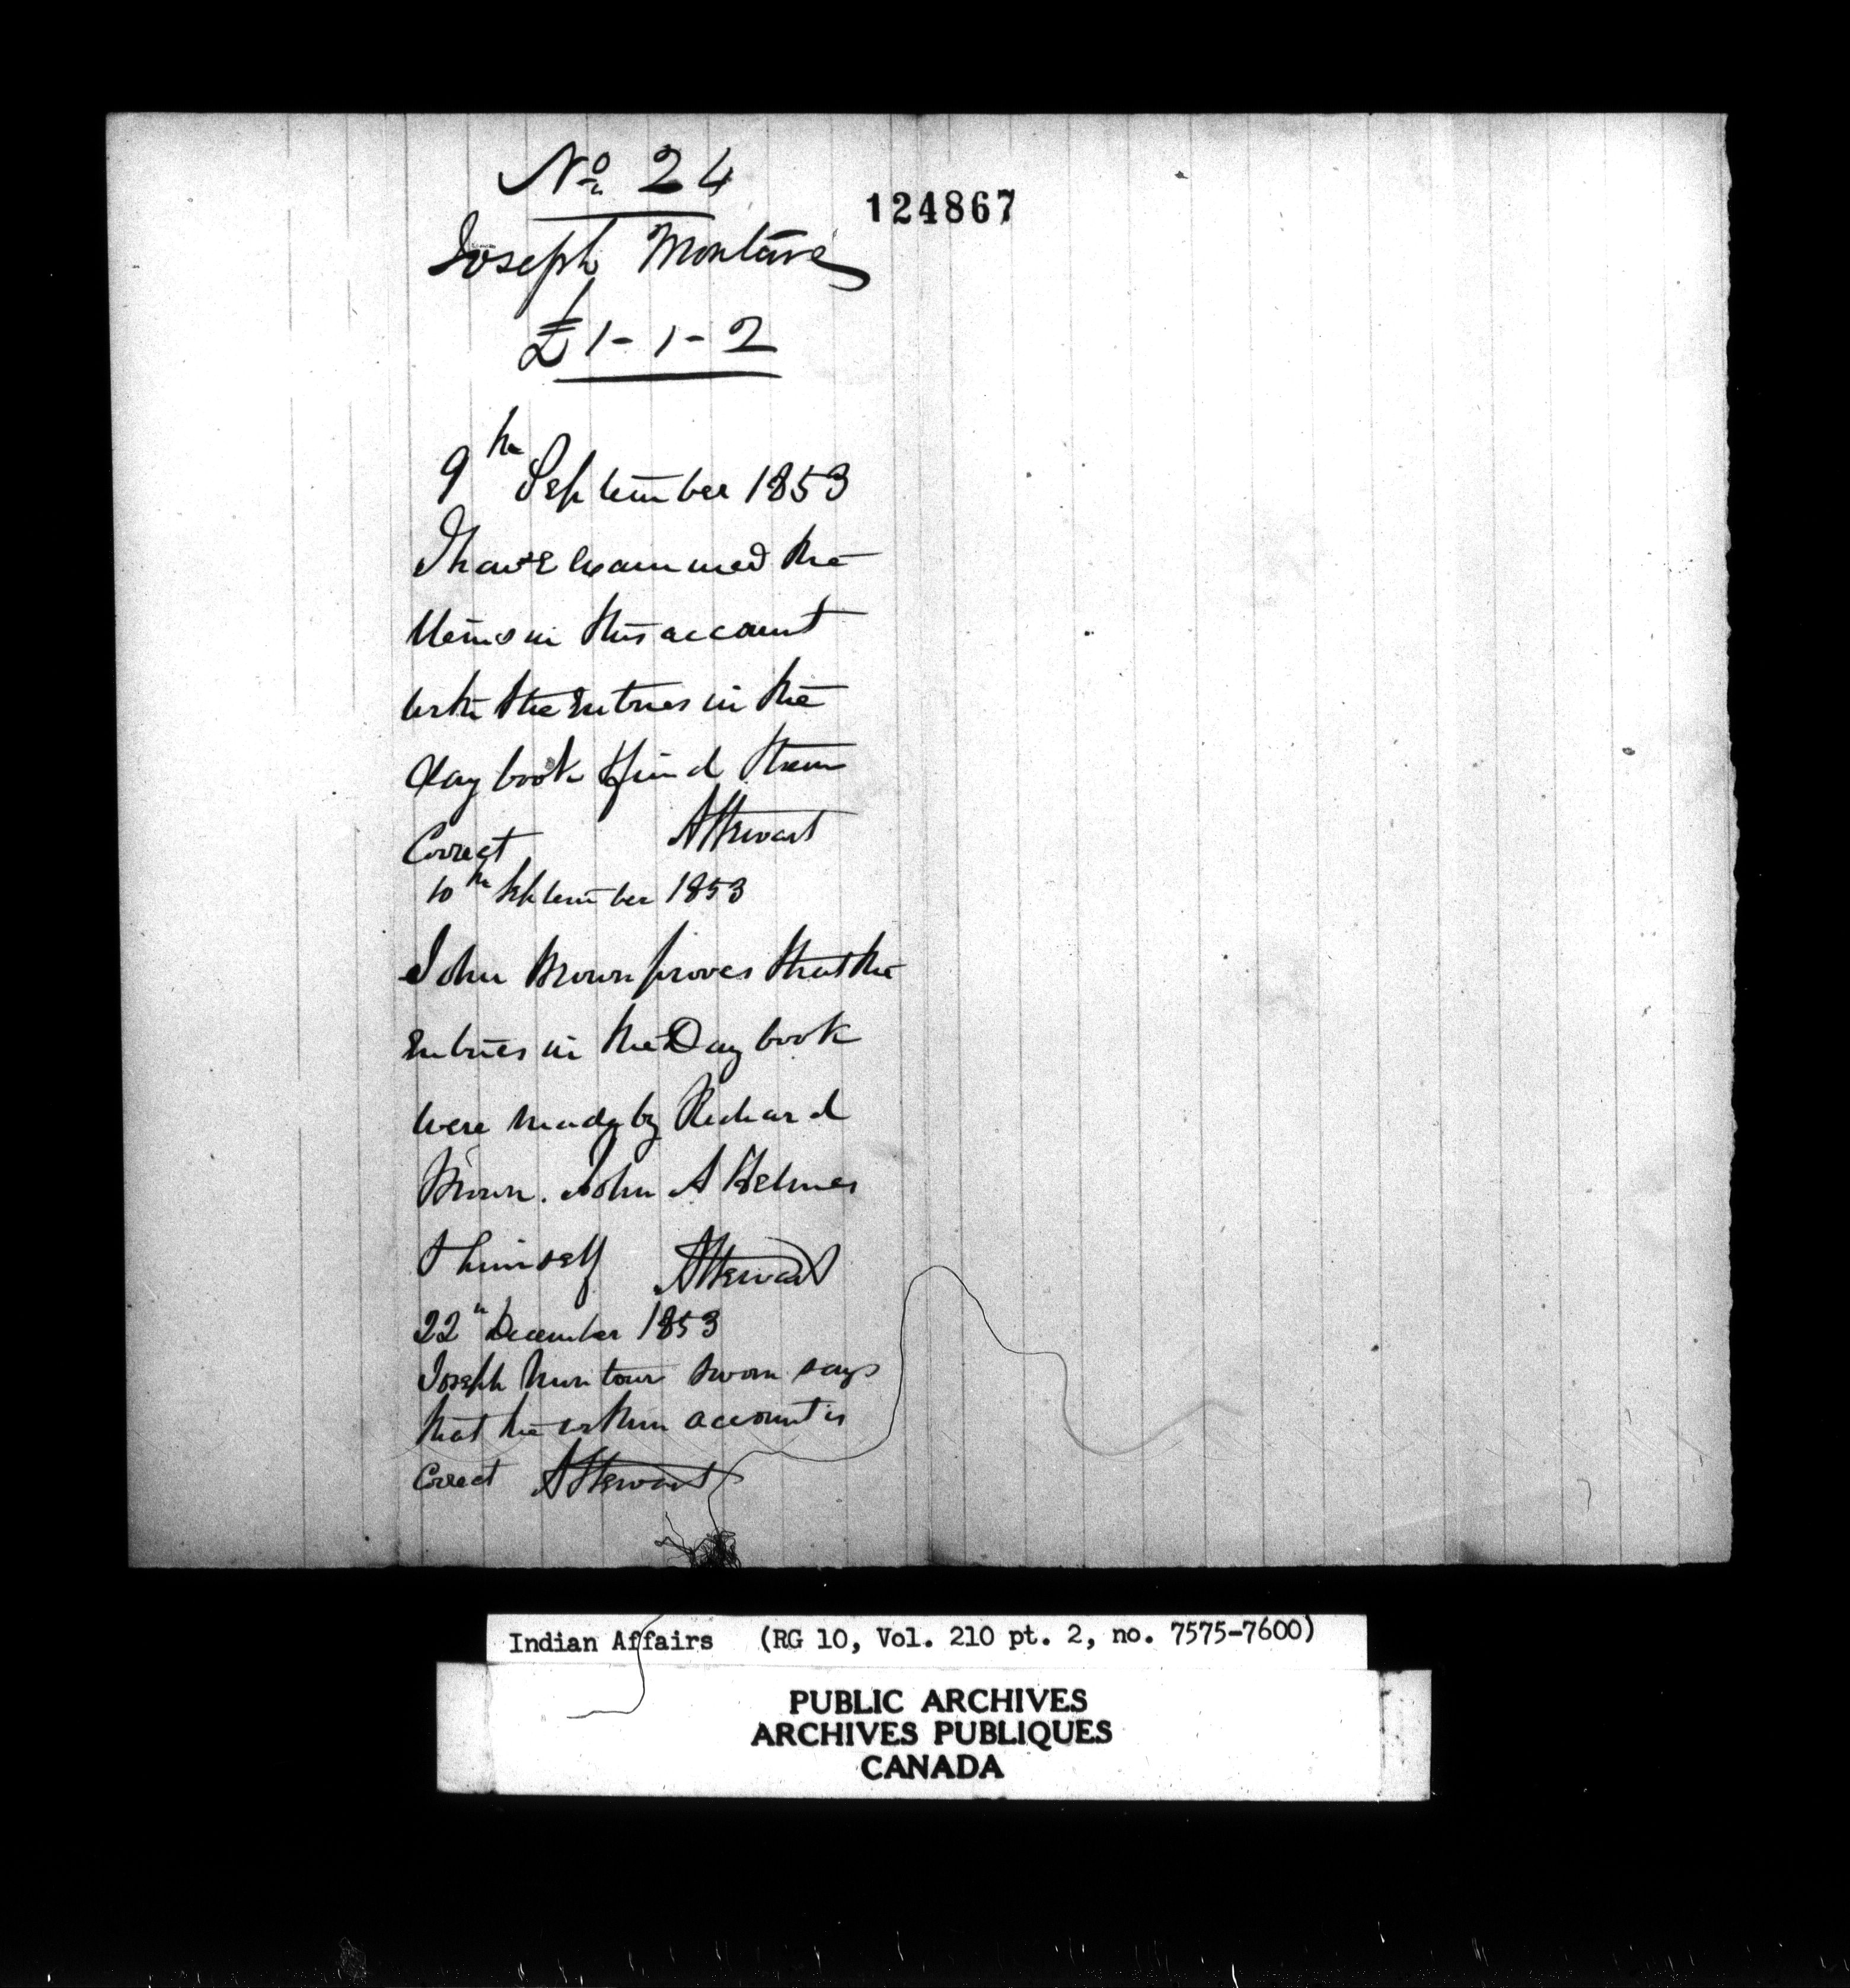 No 24
124867
Joseph Montave
£1-1-2
9th September 1853
I have examined the
items in this account
with the entries in the
day book & find them
Correct AStewart
10th September 1853
John Brown proves that the
entries in the Day book
were made by Richard
Brown. John A Helmer
& himself AStewart
22" December 1853
Joseph Muntour sworn says
that the within account is
Correct AStewart
Indian Affairs (RG 10, Vol. 210 pt. 2, no. 7575-7600)
PUBLIC ARCHIVES
ARCHIVES PUBLIQUES
CANADA